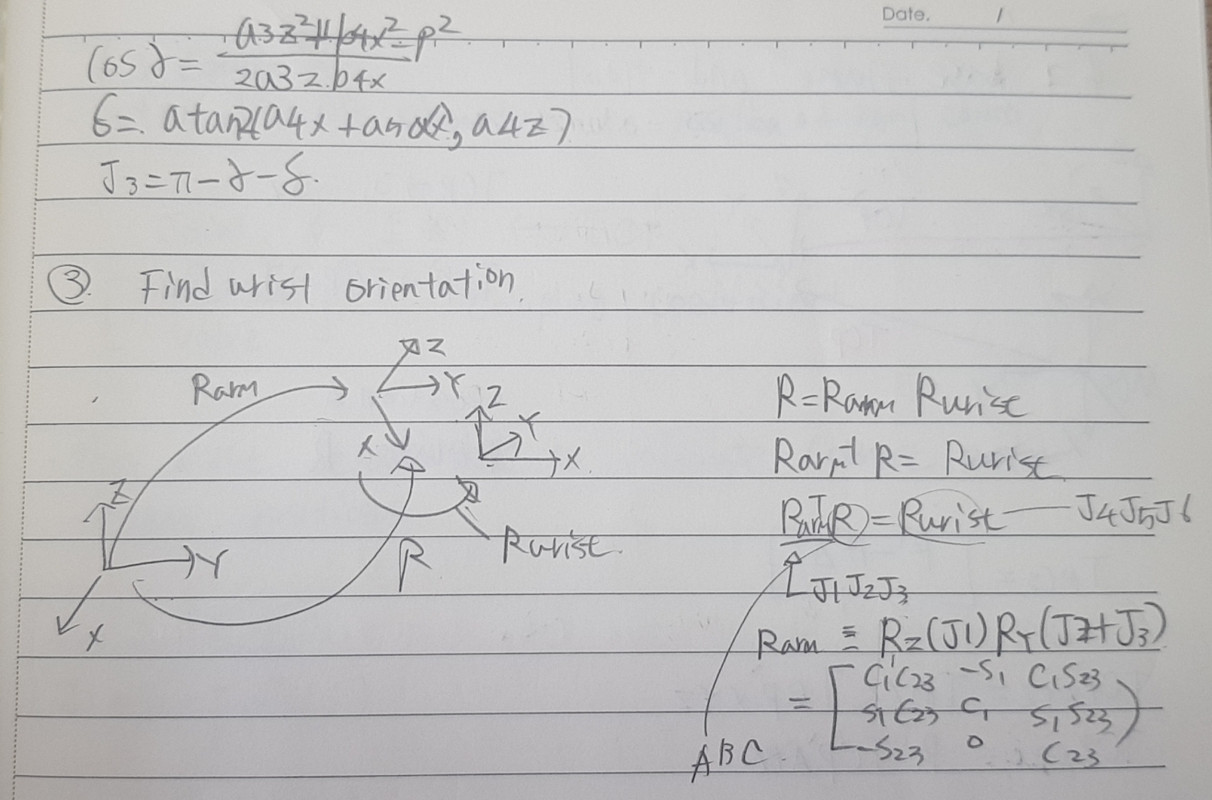 Date. /
cos γ = (a3z² + b4x² - ρ²) / (2a3z.b4x)
δ = atan2(a4x + a5x, a4z)
J3 = π - γ - δ.
③. Find wrist orientation.
Rarm
Z
Y
X
Z
Y
X
Z
Y
X
R
Rwrist.
R = Rarm Rwrist
Rarm⁻¹ R = Rwrist
RarmᵀR = Rwrist — J4J5J6
J1J2J3
Rarm = Rz(J1) RY(J2+J3)
= [ C1C23 -S1 C1S23
S1C23 C1 S1S23
-S23 0 C23 ]
ABC